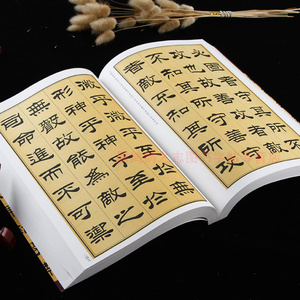 必固者守其所不
攻也故善攻者敵
不知其所守善守
者敵不知其所攻
微乎微乎至於無
形神乎神乎至於
無聲故能為敵之
司命進而不可禦